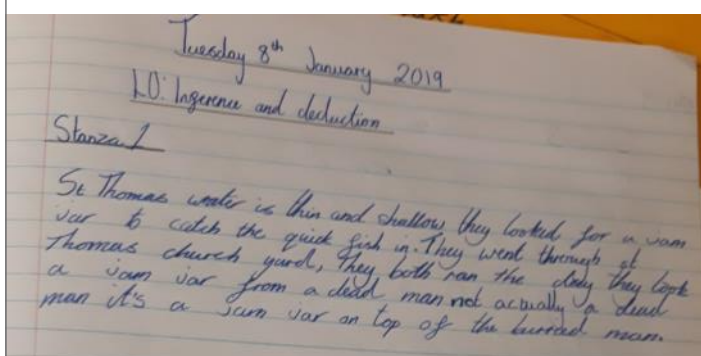 Tuesday 8th January 2019
LO: Inference and deduction
Stanza 1
St Thomas water is thin and shallow, they looked for a jam
jar to catch the quick fish in. They went through st
Thomas church yard, they both ran the day they took
a jam jar from a dead man not actually a dead
man it's a jam jar on top of the burried man.